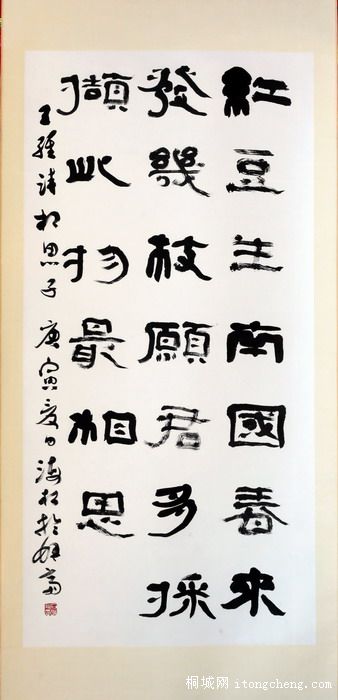 紅豆生南國春來
發幾枝願君多採
擷此物最相思
王維詩相思子庚寅夏日海松於齋
桐城网 itongcheng.com